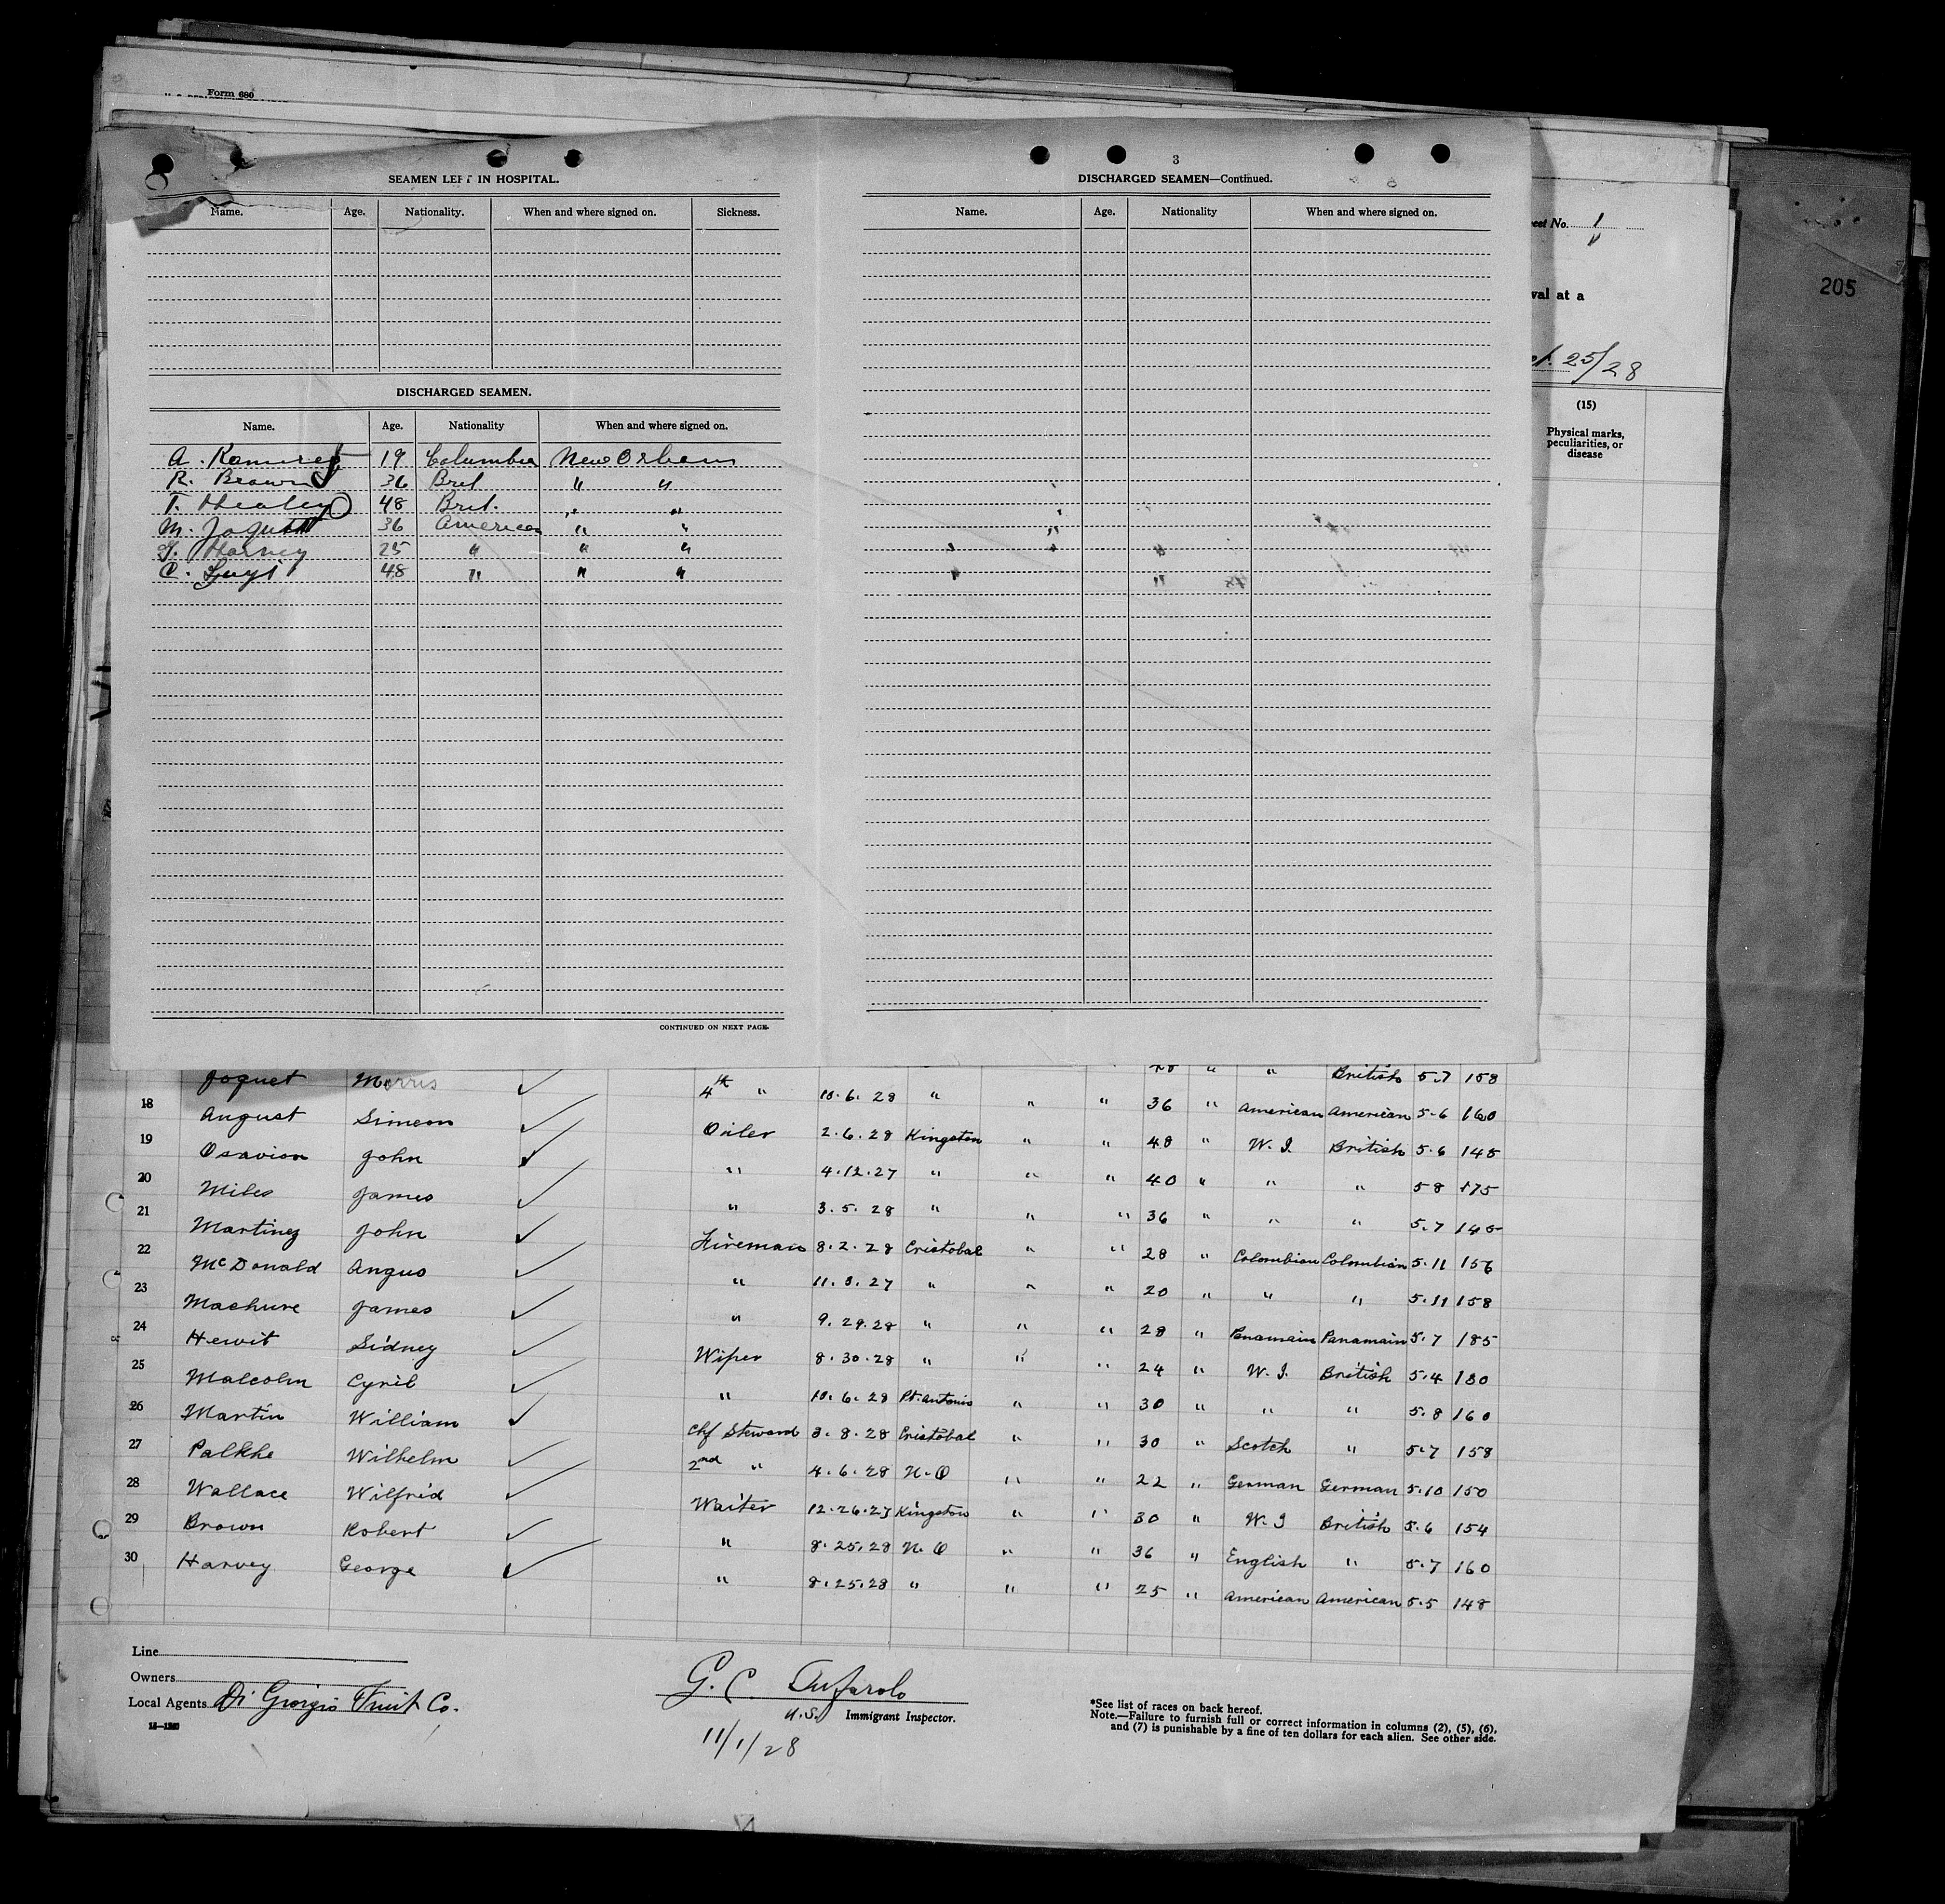 Form 680
SEAMEN LEFT IN HOSPITAL.
Name. Age. Nationality. When and where signed on. Sickness.
DISCHARGED SEAMEN.
Name. Age. Nationality When and where signed on.
A. Ramirez 19 Columbia New Orleans
R. Brown 36 Brit " "
T. Healey 48 Brit. " "
M. Joquett 36 American " "
G. Harvey 25 " " "
C. 48 " " "
CONTINUED ON NEXT PAGE.
3
DISCHARGED SEAMEN—Continued.
Name. Age. Nationality When and where signed on.
eet No. 1
val at a
25/28
(15)
Physical marks, peculiarities, or disease
205
" " British 5.7 158
Joquet Morris 4th " 10.6.28 " " " 36 " American American 5.6 160
18 August Simeon Oiler 2.6.28 Kingston " " 48 " W. I. British 5.6 148
19 Osavion John " 4.12.27 " " " 40 " " " 5 8 175
20 Miles James " 3.5.28 " " " 36 " " " 5.7 145
21 Martinez John Fireman 8.2.28 Cristobal " " 28 " Colombian Colombian 5.11 156
22 McDonald Angus " 11.8.27 " " " 20 " " " 5.11 158
23 Machure James " 9.29.28 " " " 28 " Panamain Panamain 5.7 185
24 Hewit Sidney Wiper 8.30.28 " " " 24 " W. I. British 5.4 130
25 Malcolm Cyril " 10.6.28 Pt. Antonio " " 30 " " " 5.8 160
26 Martin William Chf Steward 3.8.28 Cristobal " " 30 " Scotch " 5.7 158
27 Palkhe Wilhelm 2nd " 4.6.28 N.O " " 22 " German German 5.10 150
28 Wallace Wilfrid Waiter 12.26.27 Kingston " " 30 " W. I British 5.6 154
29 Brown Robert " 8.25.28 N.O " " 36 " English " 5.7 160
30 Harvey George " 8.25.28 " " " 25 " American American 5.5 148
Line
Owners
Local Agents Di Giorgio Fruit Co.
G. C.
U.S. Immigrant Inspector.
11/1/28
*See list of races on back hereof.
Note.—Failure to furnish full or correct information in columns (2), (5), (6),
and (7) is punishable by a fine of ten dollars for each alien. See other side.